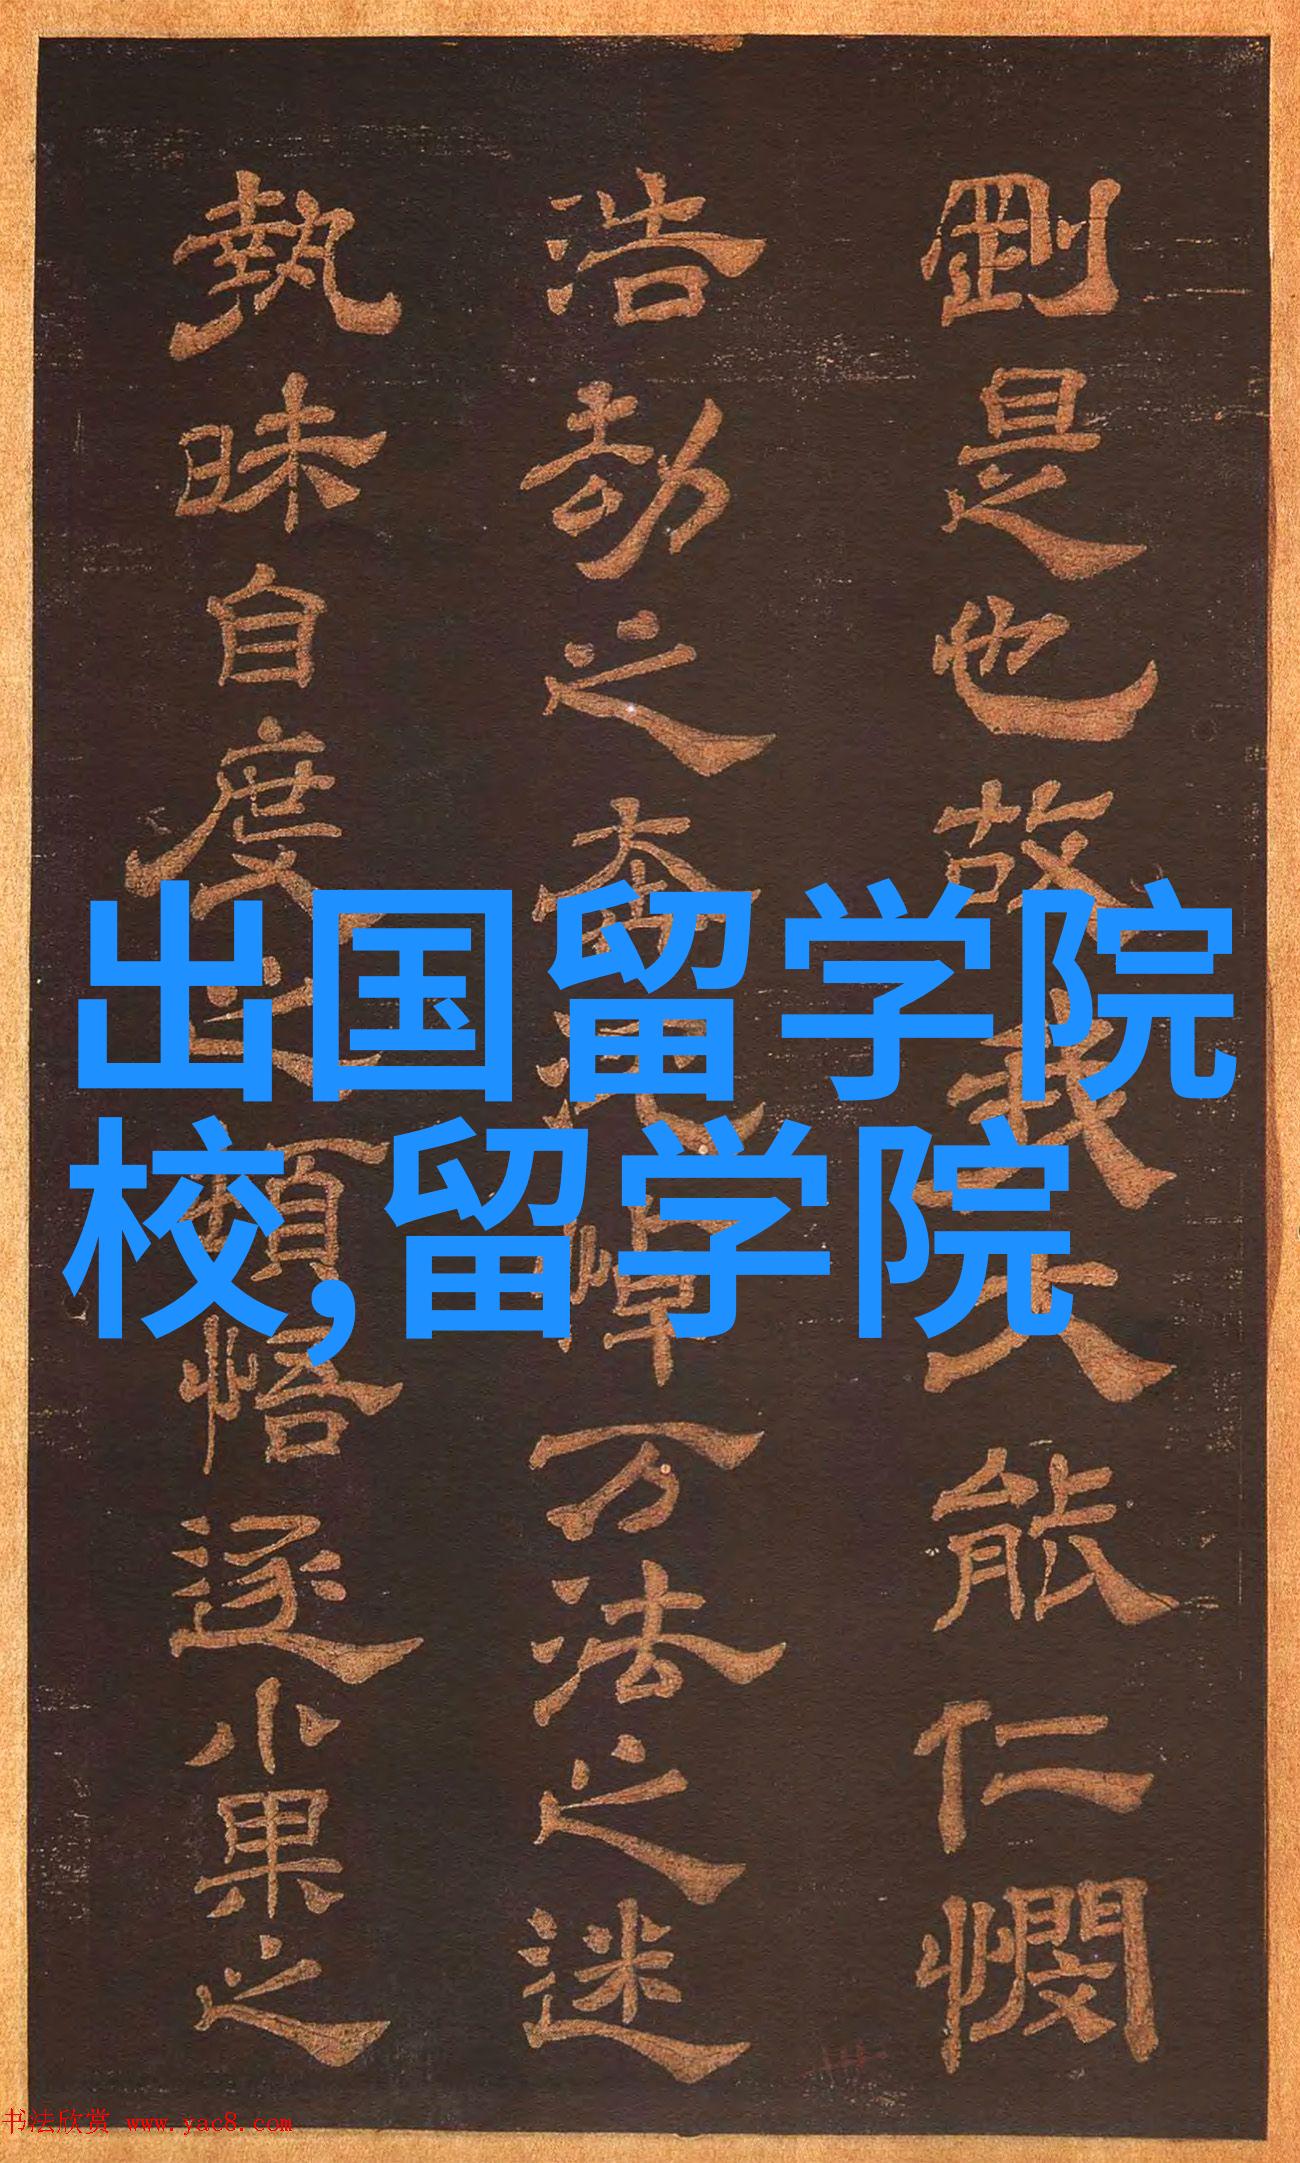 剛是也故我大能仁憫
浩劫之奔沉悼万法之迷
執昧自度之頓悟逐小果之
出国留学院
校,留学院
书法欣赏 www.yac8.com